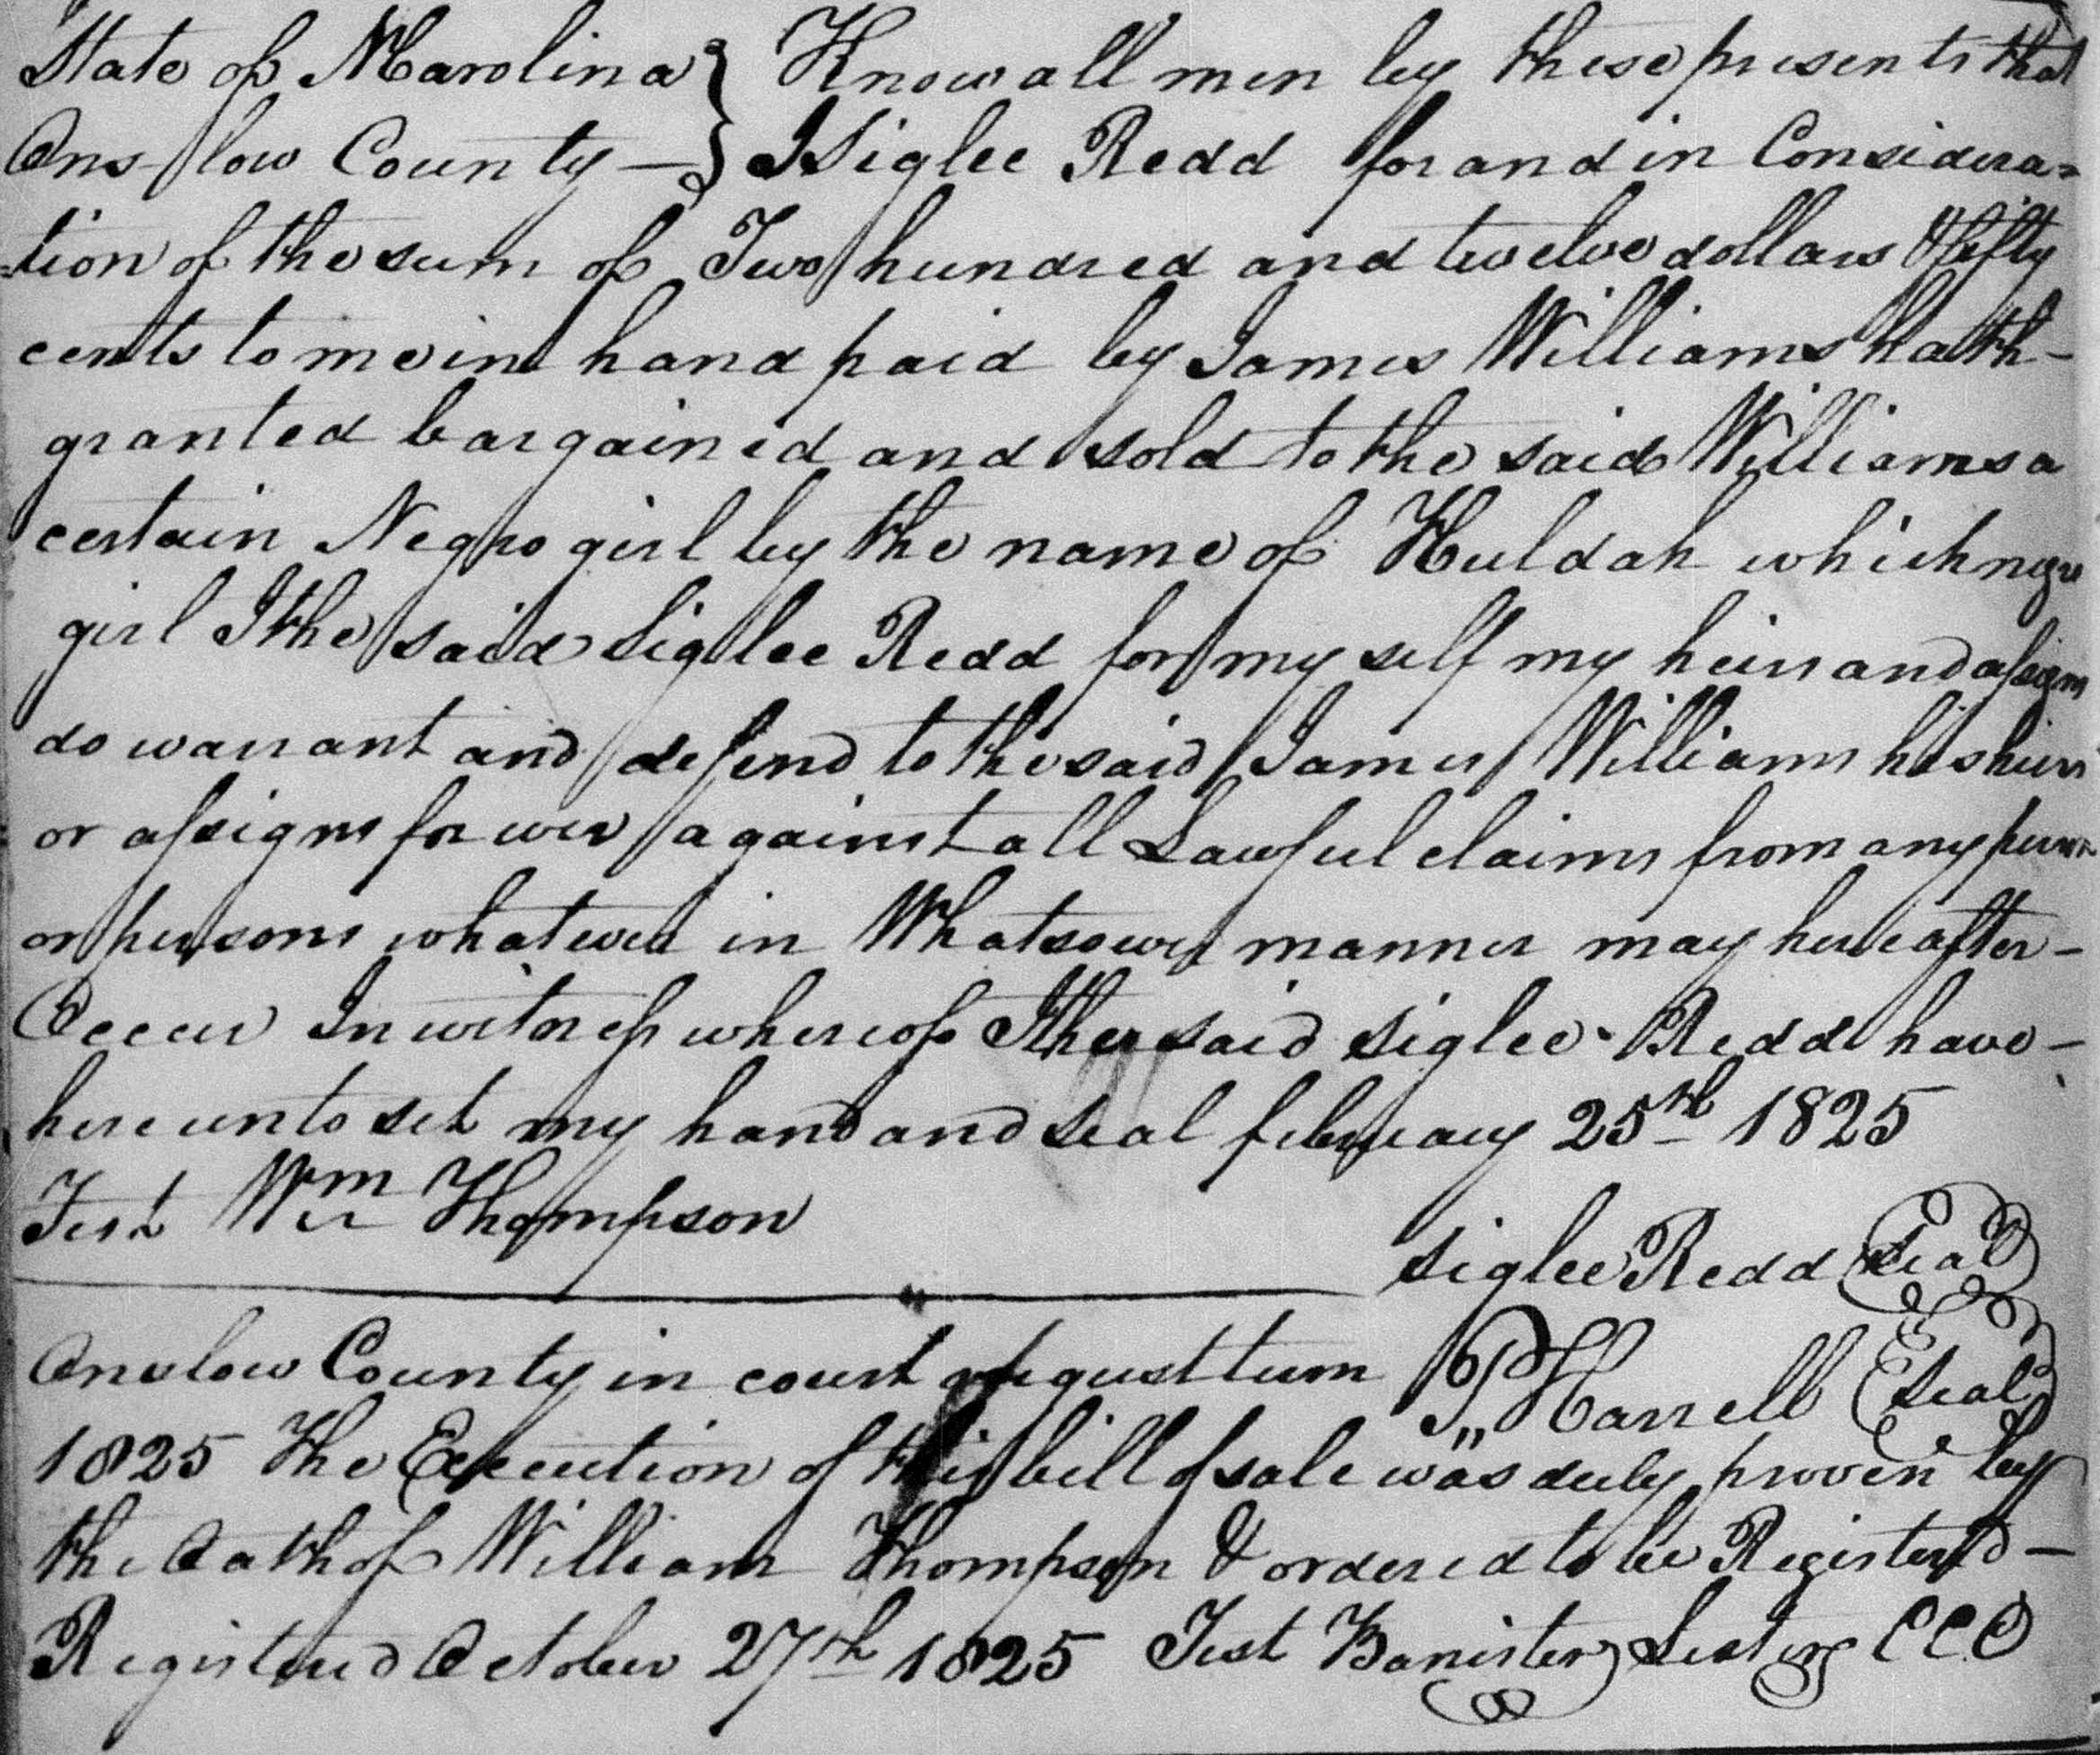 State of NCarolina } Know all men by these presents that
Onslow County — } I Siglee Redd for and in Considera=
=tion of the sum of Two hundred and twelve dollars & fifty
cents to me in hand paid by James Williams hath -
granted bargained and sold to the said Williams a
certain Negro girl by the name of Huldah which negro
girl I the said Siglee Redd for my self my heirs and assigns
do warrant and defend to the said James Williams his heirs
or assigns forever against all Lawful claims from any person
or persons whatever in Whatsoever manner may hereafter -
Occur In witness whereof I the said Siglee Redd have -
hereunto set my hand and seal february 25th 1825
Test Wm Thompson
Siglee Redd Seal
Onslow County in court August term P,, Harrell Seal
1825 The Execution of this bill of sale was duly proven by
the Oath of William Thompson & ordered to be Registerd -
Registered October 27th 1825 Test Banister Lester CCC